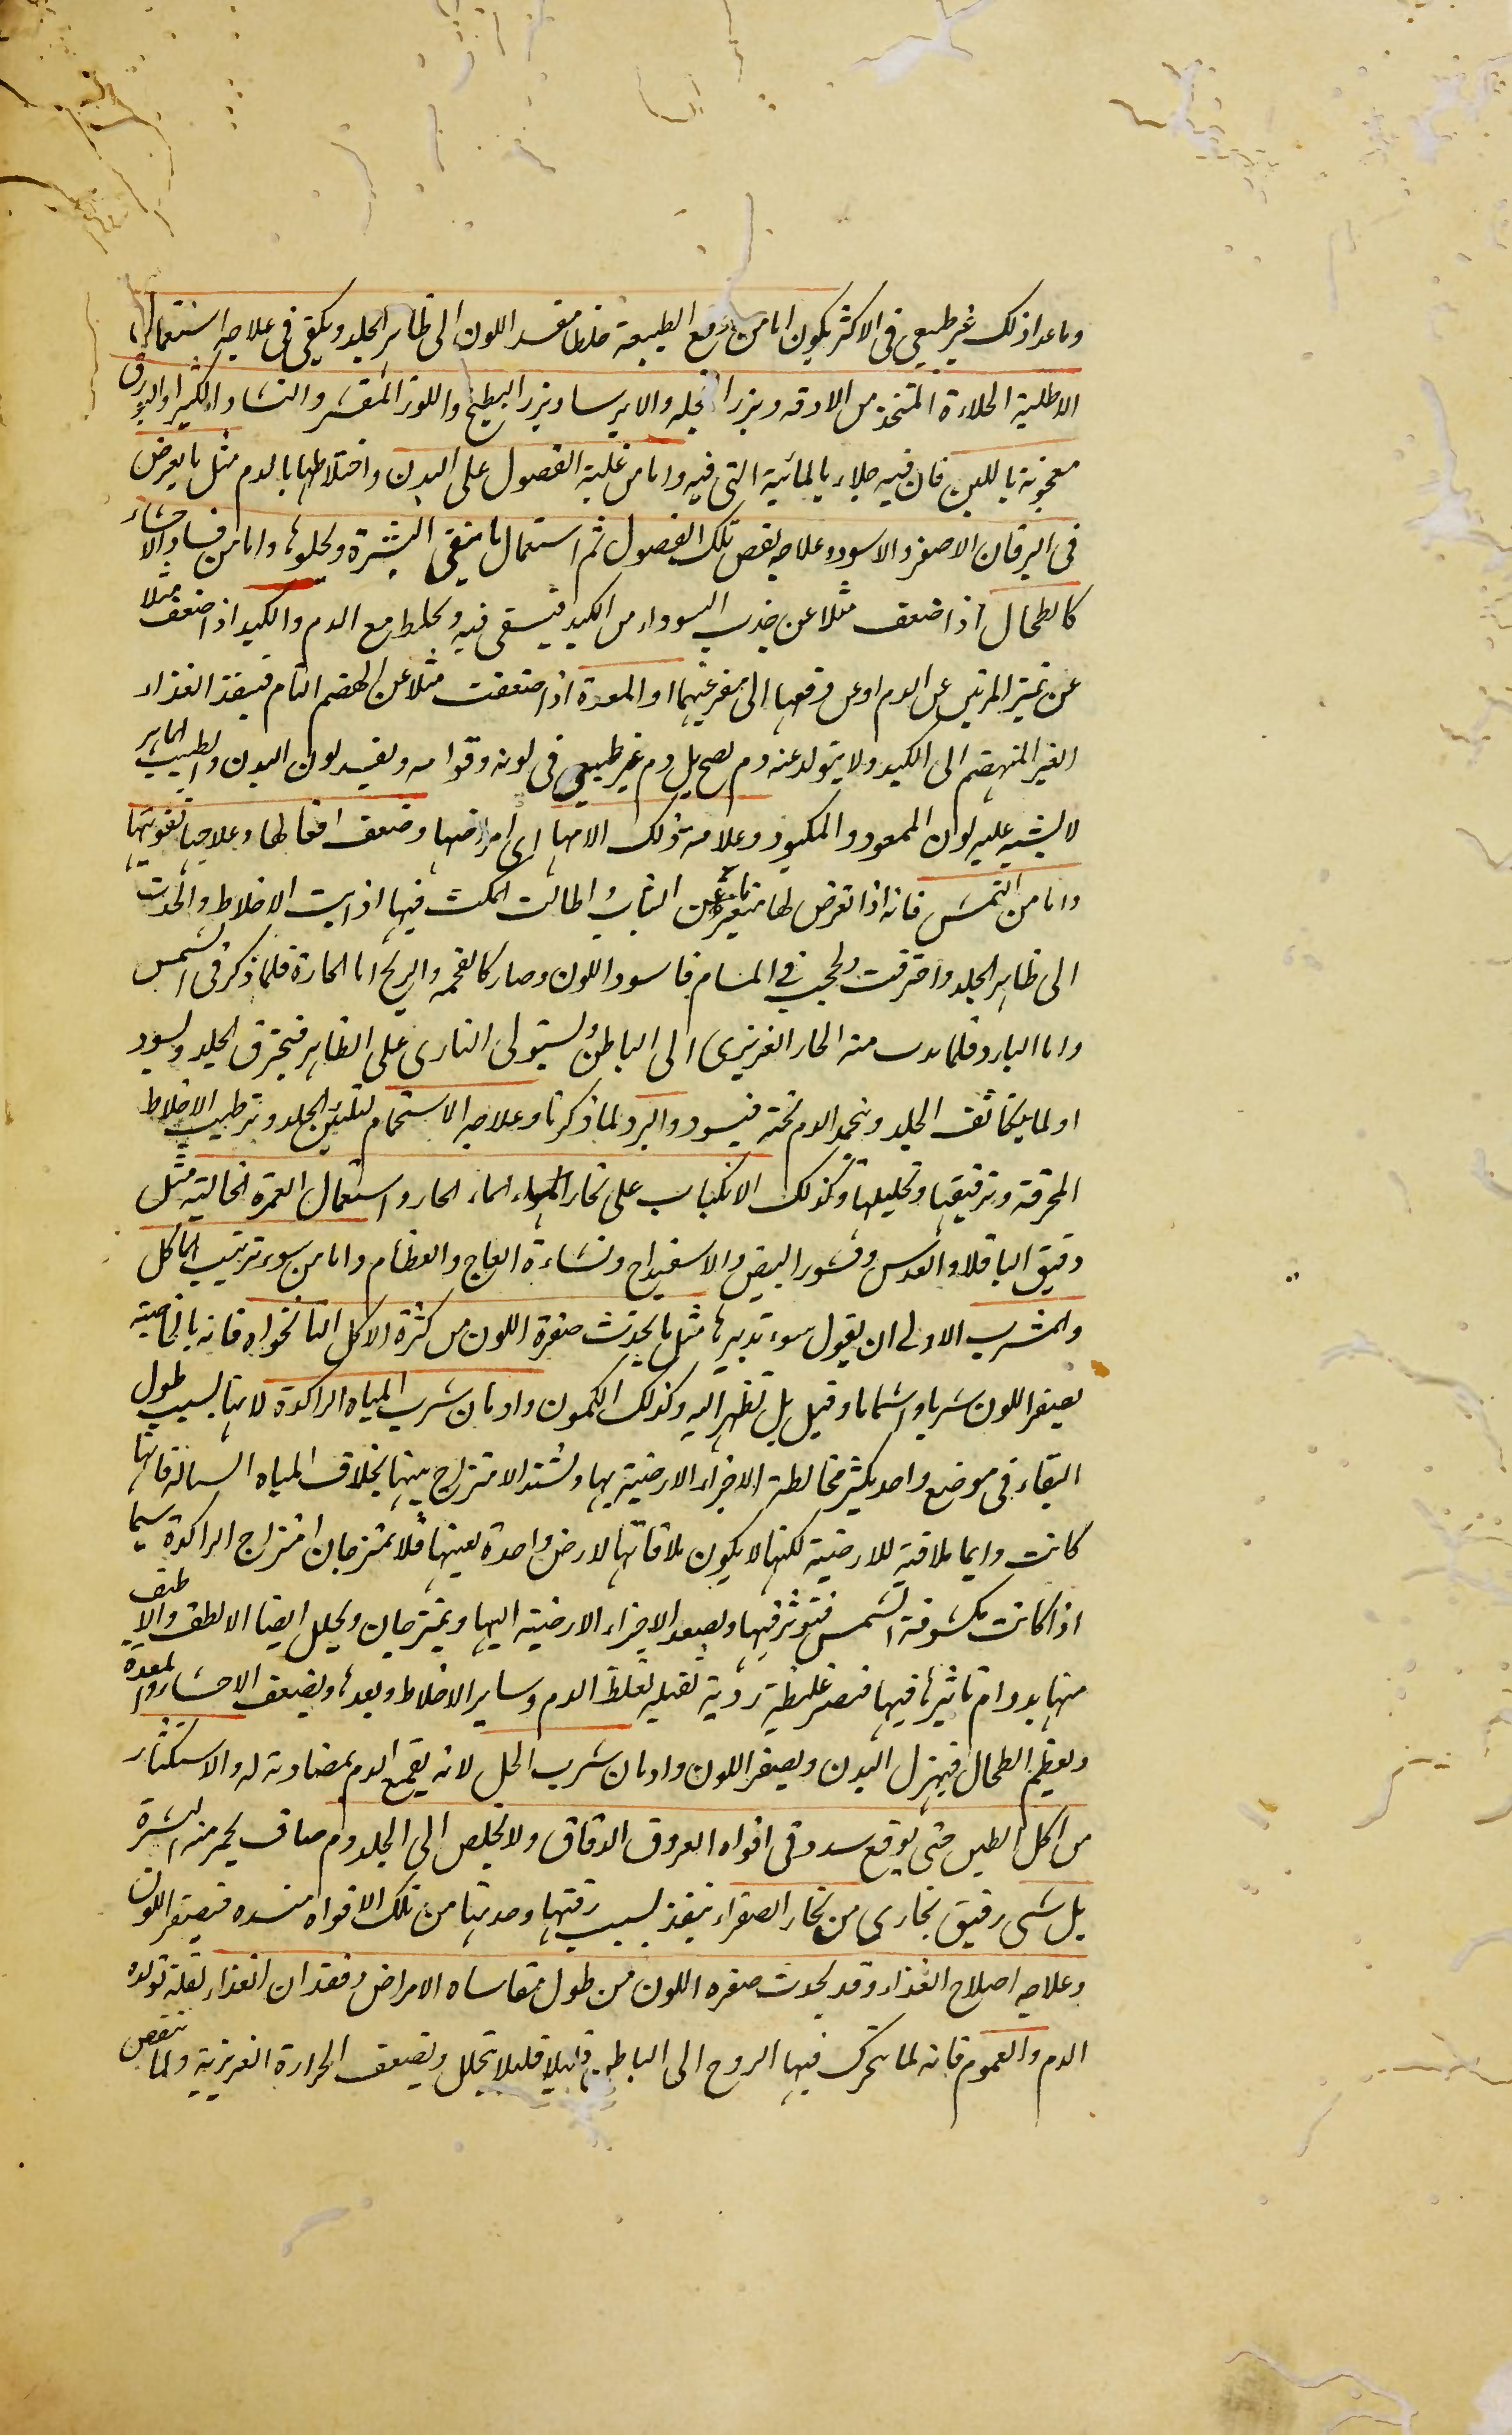 وما عدا ذلك غير طبيعى فى الاكثر يكون اما من دفع الطبيعة خلطا مفسد اللون الى ظاهر الجلد ويكفى فى علاجه استعمال
الاطلية الجلاءة المتخذة من الادقه وبزر الفجله والايرسا وبزر البطيخ واللوز المقشر والنشا والكثيرا والبورق
معجونة باللبن فان فيه جلاء بالمائية التى فيه واما من غلبة الفضول على البدن واختلاطها بالدم مثل ما يعرض
فى اليرقان الاصفر والاسود وعلاجه نفص تلك الفضول ثم استعمال ما ينقى البشرة ويجلوها واما من فساد الاحشاء
كالطحال اذا ضعف مثلا عن جذب السوداء من الكبد فيبقى فيه ويخلط مع الدم والكبد اذا ضعف مثلا
عن تميز المرتين عن الدم او عن دفعها الى مفرغيهما او المعدة اذا ضعفت مثلا عن الهضم التام فينفذ الغذاء
الغير المنهضم الى الكبد ولا يتولد عنه دم يصح بل دم غير طبيعى فى لونه وقوامه ويفسد لون البدن والطبيب الماهر
لا يشتبه عليه لون الممعود والمكبود وعلامة ذلك الامها اى امراضها وضعف افعالها وعلاجها تقويتها
واما من الشمس فانه اذا تعرض لها متعريا عن الثياب واطالت المكث فيها اذابت الاخلاط وانجذبت
الى ظاهر الجلد واحترقت فى المسام فاسود اللون وصار كالفحمه والريح اما الحارة فلما ذكر فى الشمس
واما البارد فلما يهرب منه الحار الغريزى الى الباطن ويستولى النارى على الظاهر فيحترق الجلد ويسود
او لما يتكاثف الجلد ويجمد الدم تحته فيسود والبرد لما ذكرنا وعلاجه الاستحمام لتليين الجلد وترطيب الاخلاط
المحرقة وترقيقها وتحليلها وكذلك الانكباب على بخار الماء الحار واستعمال الغمرة الجالية مثل
دقيق الباقلا والعدس وقشور البيض والاسفيداج ونشاءة العاج والعظام واما من سوء ترتيب الماكل
والمشرب الاولى ان يقول سوء تدبيرها مثل ما يحدث صفرة اللون من كثرة الاكل النانخواه فانه بالخاصية
يصفر اللون شربا واشتماما وقيل بل نظر اليه وكذلك الكمون وادمان شرب المياه الراكدة لانها بسبب طول
البقاء فى موضع واحد يكثر مخالطة الاجزاء الارضية بها ويشتد الامتزاج بينها بخلاف المياه السيالة فانها
كانت دايما ملاقية للارضية لكنها لا يكون ملاقاتها لارض واحدة بعينها فلا يمتزجان امتزاج الراكدة سيما
اذا كانت مكشوفة الشمس فتؤثر فيها ويصعد الاجزاء الارضية اليها ويمتزجان ويحلل ايضا الالطف والالطف
منها بدوام تاثيرها فيها فتصير غليظة ردية ثقيله تغلظ الدم وساير الاخلاط ويعد ها ويضعف الاحشاء والمعدة
ويعظم الطحال فيهزل البدن ويصفر اللون وادمان شرب الخل لانه يقمع الدم بمضادته له والاستكثار
من اكل الطين حتى يوقع سدد فى افواه العروق الدقاق ولا يخلص الى الجلد دم صاف يحمر منه البشرة
بل شى رقيق بخارى من بخار الصفراء ينفذ بسبب رقتها وحدتها من تلك الافواه منسده فيصفر اللون
وعلاجه اصلاح الغذاء وقد يحدث صفره اللون من طول مقاساه الامراض وفقدان الغذاء لقلة تولده
الدم والغموم فانه لما يتحرك فيها الروح الى الباطن قليلا قليلا يتحلل ويضعف الحرارة الغريزية ولما ينقص